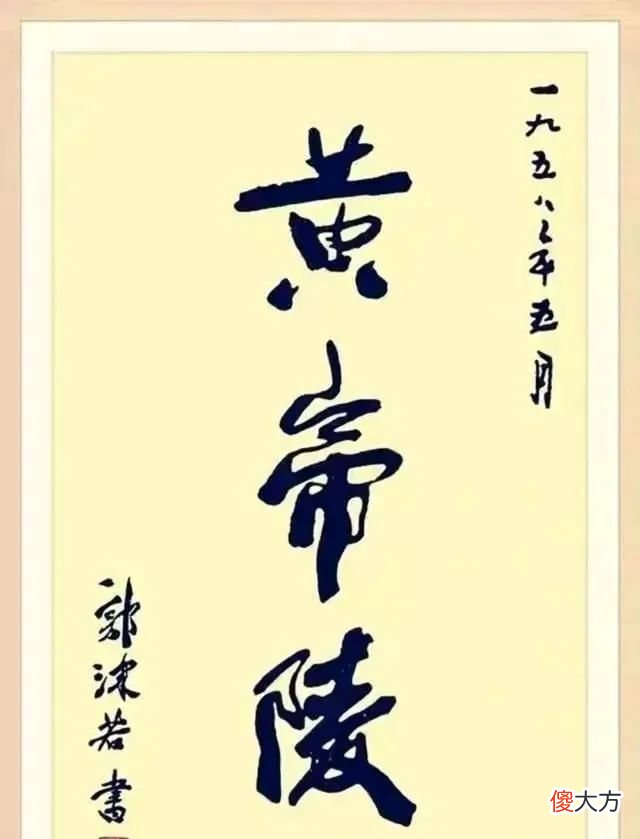 一九五八年五月
黄帝陵
郭沫若书
傻大方